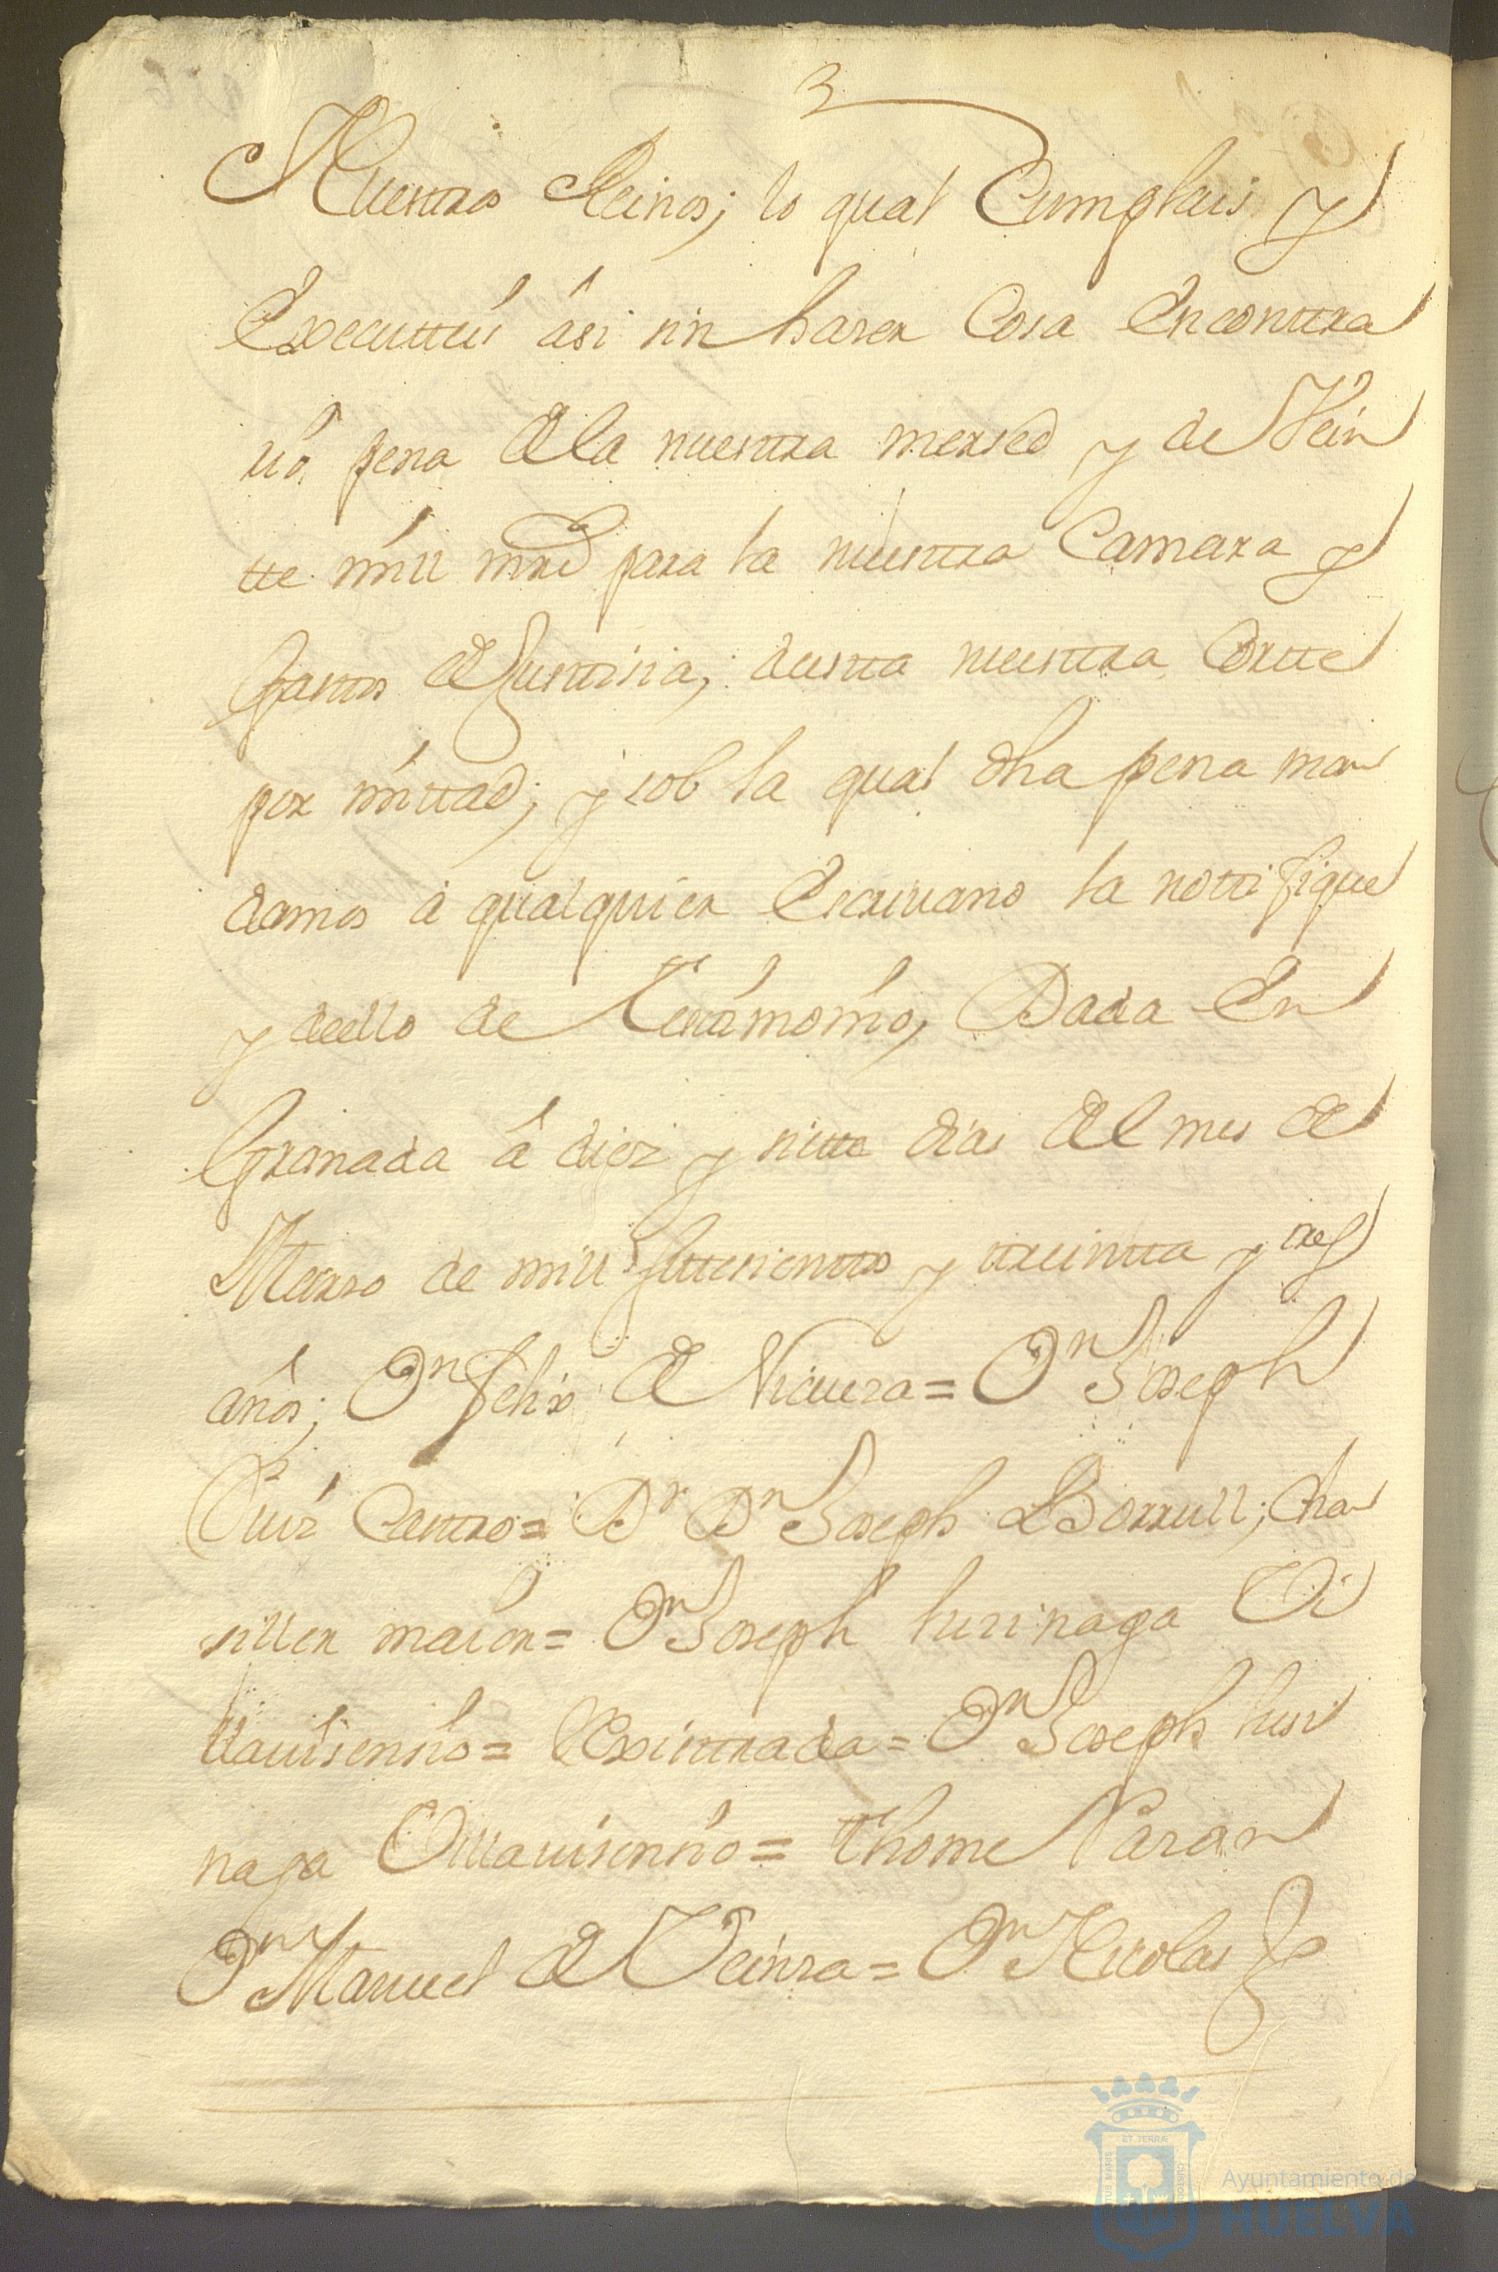 Nuestros Reinos; lo qual Cumplais y
Executteis âsi sin haser Cosa Encontra
rio, pena dela nuestra mersed y de Vein
tte mill mrs para la nuestra Camara y
gastos de Justtisia, desta nuestra Cortte
por mittad; y sob la qual dha pena man
damos â qualquier Escriuano la nottifique
y deello de Testtimonio, Dada En
Granada â diez y siette dias del mes de
Marso de mill settesienttos y ttreintta y tres
años; Dn Felix de = Dn Joseph
Ruiz Castro = Dr Dn Joseph Borrull; Chan
siller maior = Dn Joseph Lusinaga Vi
llauisensio = Rexisttrada = Dn Joseph Lusi
naga Villauisensio = Thome Naran
Dn Manuel de = Dn Nicolas
ET TERRÆ
Ayuntamiento de
HUELVA